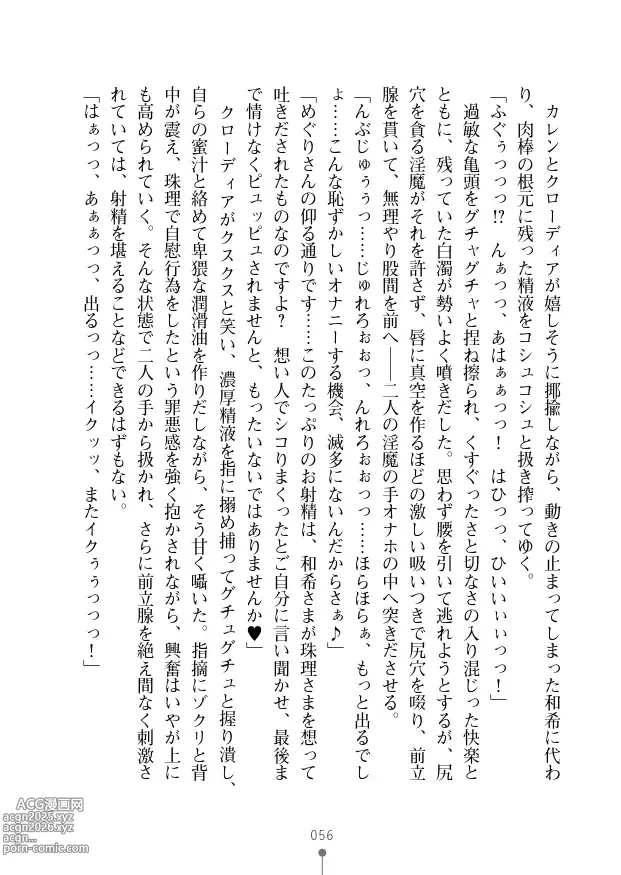 カレンとクローディアが嬉しそうに揶揄しながら、動きの止まってしまった和希に代わ
り、肉棒の根元に残った精液をコシュコシュと扱き搾ってゆく。
「ふぐぅっっっ!?　んぁっっ、あはぁぁっっ！　はひっっ、ひいぃいぃっっ！」
　過敏な亀頭をグチャグチャと捏ね擦られ、くすぐったさと切なさの入り混じった快楽と
ともに、残っていた白濁が勢いよく噴きだした。思わず腰を引いて逃れようとするが、尻
穴を貪る淫魔がそれを許さず、唇に真空を作るほどの激しい吸いつきで尻穴を啜り、前立
腺を貫いて、無理やり股間を前へ――二人の淫魔の手オナホの中へ突きださせる。
「んぶじゅぅぅっ……じゅれろぉぉっ、んれろぉぉっっ……ほらほらぁ、もっと出るでし
ょ……こんな恥ずかしいオナニーする機会、滅多にないんだからさぁ♪」
「めぐりさんの仰る通りです……このたっぷりのお射精は、和希さまが珠理さまを想って
吐きだされたものなのですよ？　想い人でシコりまくったとご自分に言い聞かせ、最後ま
で情けなくピュッピュされませんと、もったいないではありませんか♥」
　クローディアがクスクスと笑い、濃厚精液を指に搦め捕ってグチュグチュと握り潰し、
自らの蜜汁と絡めて卑猥な潤滑油を作りだしながら、そう甘く囁いた。指摘にゾクリと背
中が震え、珠理で自慰行為をしたという罪悪感を強く抱かされながら、興奮はいやが上に
も高められていく。そんな状態で二人の手から扱かれ、さらに前立腺を絶え間なく刺激さ
れていては、射精を堪えることなどできるはずもない。
「はぁっっ、あぁぁっっ、出るっっ……イクッッ、またイクぅぅっっっ！」
056
ACG漫画网
acgn2025.xyz
acgn2026.xyz
acgn...
porn-comic.com